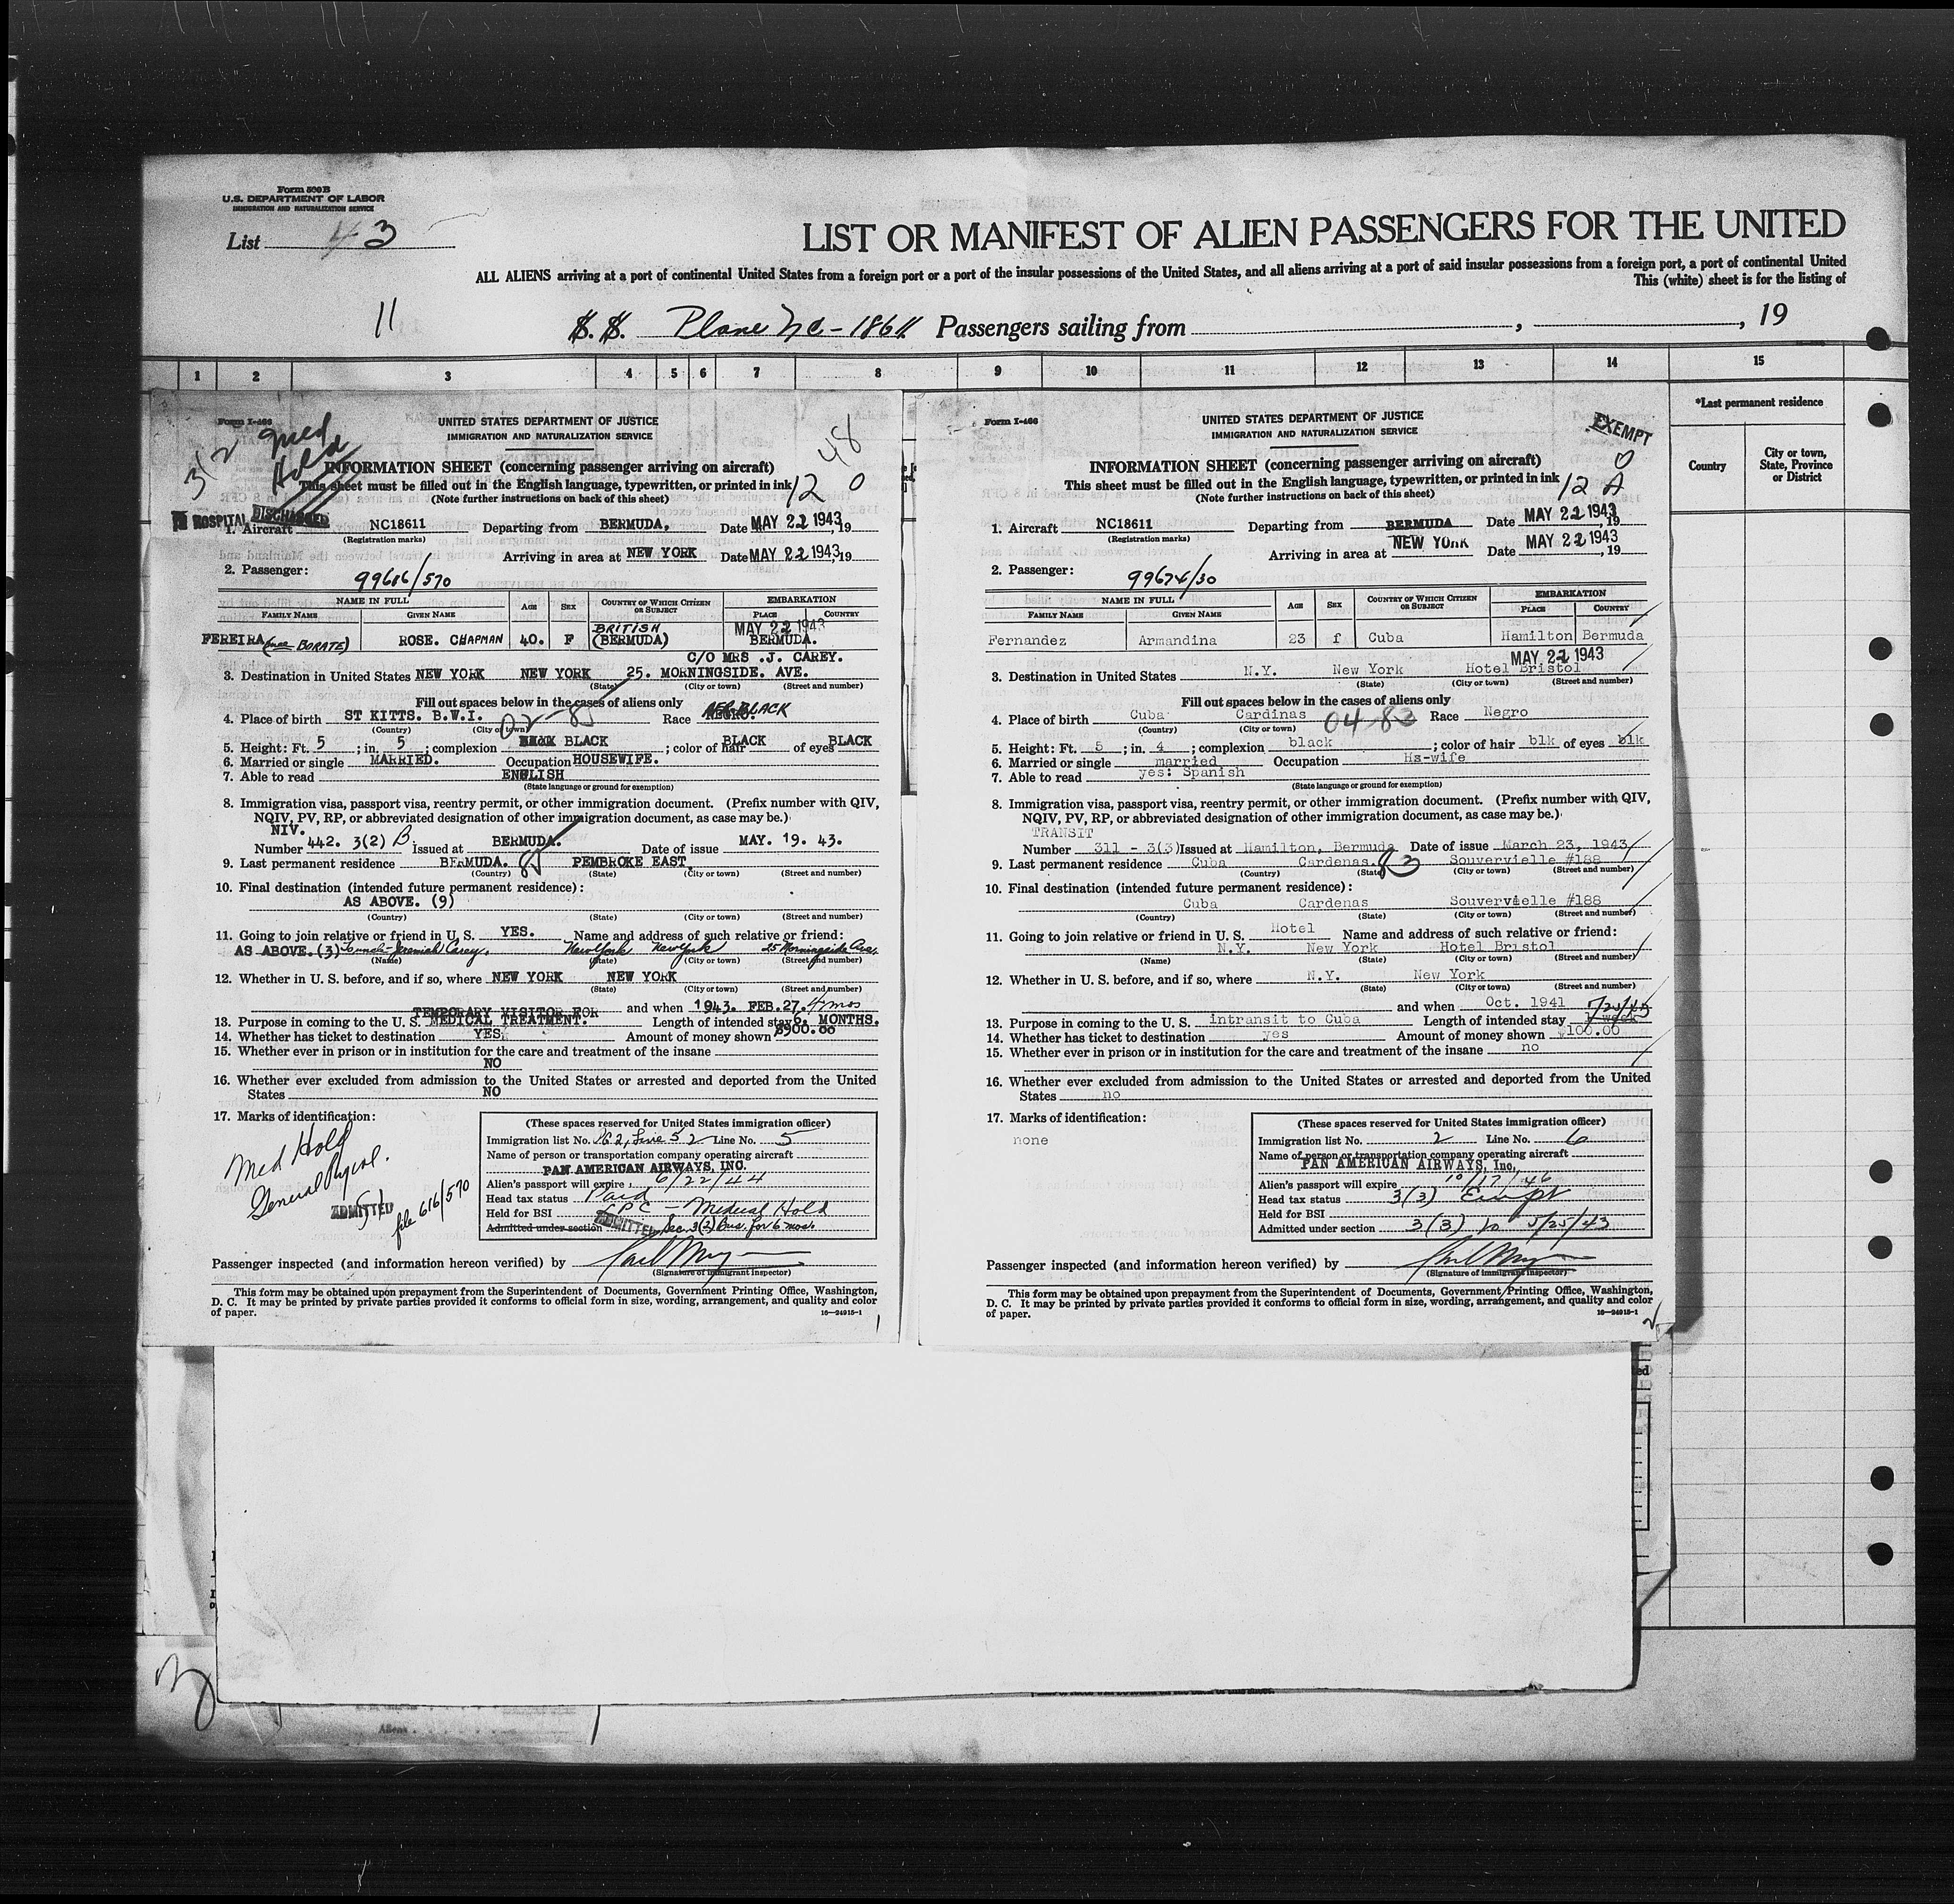 Form 500 B
U.S. DEPARTMENT OF LABOR
IMMIGRATION AND NATURALIZATION SERVICE
List 3
LIST OR MANIFEST OF ALIEN PASSENGERS FOR THE UNITED
ALL ALIENS arriving at a port of continental United States from a foreign port or a port of the insular possessions of the United States, and all aliens arriving at a port of said insular possessions from a foreign port, a port of continental United
This (white) sheet is for the listing of
11
S. S. Plane NC-18611 Passengers sailing from , , 19
1 2 3 4 5 6 7 8 9 10 11 12 13 14 15
*Last permanent residence
Country
City or town, State, Province or District
Form I-466
UNITED STATES DEPARTMENT OF JUSTICE
IMMIGRATION AND NATURALIZATION SERVICE
3/2 Med Hold
48
INFORMATION SHEET (concerning passenger arriving on aircraft)
This sheet must be filled out in the English language, typewritten, or printed in ink
12 0
(Note further instructions on back of this sheet)
TO HOSPITAL DISCHARGED
1. Aircraft NC18611 Departing from BERMUDA, Date MAY 22 1943, 19
(Registration marks)
Arriving in area at NEW YORK Date MAY 22 1943, 19
2. Passenger: 99616/570
NAME IN FULL AGE SEX COUNTRY OF WHICH CITIZEN OR SUBJECT EMBARKATION
FAMILY NAME GIVEN NAME PLACE COUNTRY
MAY 22 1943
FEREIRA (nee BORATE) ROSE. CHAPMAN 40. F BRITISH (BERMUDA) BERMUDA.
C/O MRS .J. CAREY.
3. Destination in United States NEW YORK NEW YORK 25. MORNINGSIDE. AVE.
(State) (City or town) (Street and number)
Fill out spaces below in the cases of aliens only
4. Place of birth ST KITTS. B.W.I. 02-85 Race NEGRO. AFR. BLACK
(Country) (City or town)
5. Height: Ft. 5 ; in. 5 ; complexion BLACK ; color of hair BLACK of eyes BLACK
6. Married or single MARRIED. Occupation HOUSEWIFE.
7. Able to read ENGLISH
(State language or ground for exemption)
8. Immigration visa, passport visa, reentry permit, or other immigration document. (Prefix number with QIV,
NQIV, PV, RP, or abbreviated designation of other immigration document, as case may be.)
NIV.
Number 442. 3(2) B. Issued at BERMUDA. Date of issue MAY. 19. 43.
9. Last permanent residence BERMUDA. 85 PEMBROKE EAST.
(Country) (City or town) (Street and number)
10. Final destination (intended future permanent residence):
AS ABOVE. (9)
(Country) (State) (City or town) (Street and number)
11. Going to join relative or friend in U. S. YES. Name and address of such relative or friend:
AS ABOVE. (3) Jeremiah Carey. New York New York 25 Morningside Ave.
(Name) (State) (City or town) (Street and number)
12. Whether in U. S. before, and if so, where NEW YORK NEW YORK
(State) (City or town) (Street and number)
and when 1943. FEB. 27. 4 mos
TEMPORARY VISITOR FOR
13. Purpose in coming to the U. S. MEDICAL TREATMENT. Length of intended stay 6. MONTHS.
14. Whether has ticket to destination YES Amount of money shown $900.00
15. Whether ever in prison or in institution for the care and treatment of the insane
NO
16. Whether ever excluded from admission to the United States or arrested and deported from the United
States NO
17. Marks of identification:
Med Hold
General Physcl.
ADMITTED
file 616/570
(These spaces reserved for United States immigration officer)
Immigration list No. PG 2, Line 5 2 Line No. 5
Name of person or transportation company operating aircraft
PAN AMERICAN AIRWAYS, INC.
Alien's passport will expire 6/22/44
Head tax status Paid
Held for BSI PC - Medical Hold
Admitted under section ADMITTED Sec. 3(2) Bus. for 6 mos
Passenger inspected (and information hereon verified) by
(Signature of immigrant inspector)
This form may be obtained upon prepayment from the Superintendent of Documents, Government Printing Office, Washington,
D. C. It may be printed by private parties provided it conforms to official form in size, wording, arrangement, and quality and color
of paper. 16—24915-1
1
Form I-466
UNITED STATES DEPARTMENT OF JUSTICE
IMMIGRATION AND NATURALIZATION SERVICE
EXEMPT
INFORMATION SHEET (concerning passenger arriving on aircraft)
0
This sheet must be filled out in the English language, typewritten, or printed in ink
12 A
(Note further instructions on back of this sheet)
1. Aircraft NC18611 Departing from BERMUDA Date MAY 22 1943, 19
(Registration marks)
Arriving in area at NEW YORK Date MAY 22 1943, 19
2. Passenger: 99674/30
NAME IN FULL AGE SEX COUNTRY OF WHICH CITIZEN OR SUBJECT EMBARKATION
FAMILY NAME GIVEN NAME PLACE COUNTRY
Fernandez Armandina 23 f Cuba Hamilton Bermuda
MAY 22 1943
3. Destination in United States N.Y. New York Hotel Bristol
(State) (City or town) (Street and number)
Fill out spaces below in the cases of aliens only
4. Place of birth Cuba Cardinas 04-83 Race Negro
(Country) (City or town)
5. Height: Ft. 5 ; in. 4 ; complexion black ; color of hair blk of eyes blk
6. Married or single married Occupation Hs-wife
7. Able to read yes: Spanish
(State language or ground for exemption)
8. Immigration visa, passport visa, reentry permit, or other immigration document. (Prefix number with QIV,
NQIV, PV, RP, or abbreviated designation of other immigration document, as case may be.)
TRANSIT
Number 311 - 3(3) Issued at Hamilton, Bermuda Date of issue March 23, 1943
9. Last permanent residence Cuba Cardenas. 83 Souvervielle #188
(Country) (State) (City or town) (Street and number)
10. Final destination (intended future permanent residence):
Cuba Cardenas Souvervielle #188
(Country) (State) (City or town) (Street and number)
11. Going to join relative or friend in U. S. Hotel Name and address of such relative or friend:
N.Y. New York Hotel Bristol
(Name) (State) (City or town) (Street and number)
12. Whether in U. S. before, and if so, where N.Y. New York
(State) (City or town) (Street and number)
and when Oct. 1941
13. Purpose in coming to the U. S. intransit to Cuba Length of intended stay 1 week
14. Whether has ticket to destination yes Amount of money shown $100.00
15. Whether ever in prison or in institution for the care and treatment of the insane no
16. Whether ever excluded from admission to the United States or arrested and deported from the United
States no
17. Marks of identification:
none
(These spaces reserved for United States immigration officer)
Immigration list No. 2 Line No. 6
Name of person or transportation company operating aircraft
PAN AMERICAN AIRWAYS, Inc,
Alien's passport will expire 10/17/46
Head tax status 3(3) Exempt
Held for BSI
Admitted under section 3(3) to 5/25/43
Passenger inspected (and information hereon verified) by
(Signature of immigrant inspector)
This form may be obtained upon prepayment from the Superintendent of Documents, Government Printing Office, Washington,
D. C. It may be printed by private parties provided it conforms to official form in size, wording, arrangement, and quality and color
of paper. 16—24915-1
2
Aliens